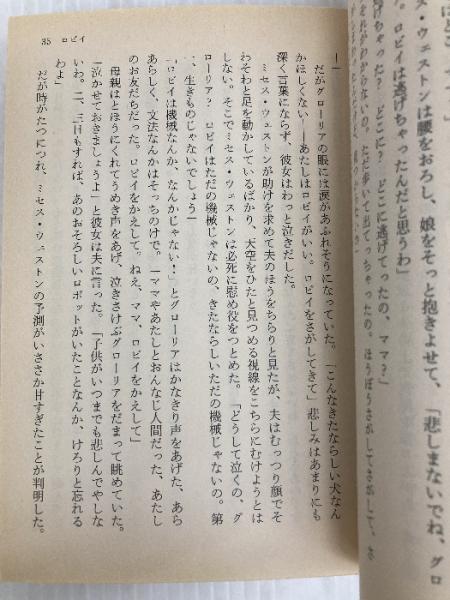 ほど
ス・ウェストンは腰をおろし、娘をそっと抱きよせて、「悲しまないでね、グロ
ロビイは逃げちゃったんだと思うわ」
げちゃった? どこに? どこに逃げてったの、ママ?」
わからないの。ただ歩いて出てっちゃったの。ほうぼうさがしてさがして、さ
35 ロビイ
だがグローリアの眼には涙があふれそうになっていた。「こんなきたならしい犬なん
かほしくない――あたしはロビイがいい。ロビイをさがしてきて」悲しみはあまりにも
深く言葉にならず、彼女はわっと泣きだした。
ミセス・ウェストンが助けを求めて夫のほうをちらりと見たが、夫はむっつり顔でそ
わそわと足を動かしているばかり、天空をひたと見つめる視線をこちらにむけようとは
しない。そこでミセス・ウェストンは必死に慰め役をつとめた。「どうして泣くの、グ
ローリア? ロビイはただの機械じゃないの、きたならしいただの機械じゃないの。第
一、生きものじゃないでしょう」
「ロビイは機械なんか、なんかじゃない!」とグローリアはかなきり声をあげた、あら
あらしく、文法なんかはそっちのけで。「ママやあたしとおんなじ人間だった、あたし
のお友だちだった。ロビイをかえして。ねえ、ママ、ロビイをかえして」
母親はとほうにくれてうめき声をあげ、泣きさけぶグローリアをだまって眺めていた。
「泣かせておきましょうよ」と彼女は夫に言った。「子供がいつまでも悲しんでやしな
いわ。二、三日もすれば、あのおそろしいロボットがいたことなんか、けろりと忘れる
わよ」
だが時がたつにつれ、ミセス・ウェストンの予測がいささか甘すぎたことが判明した。